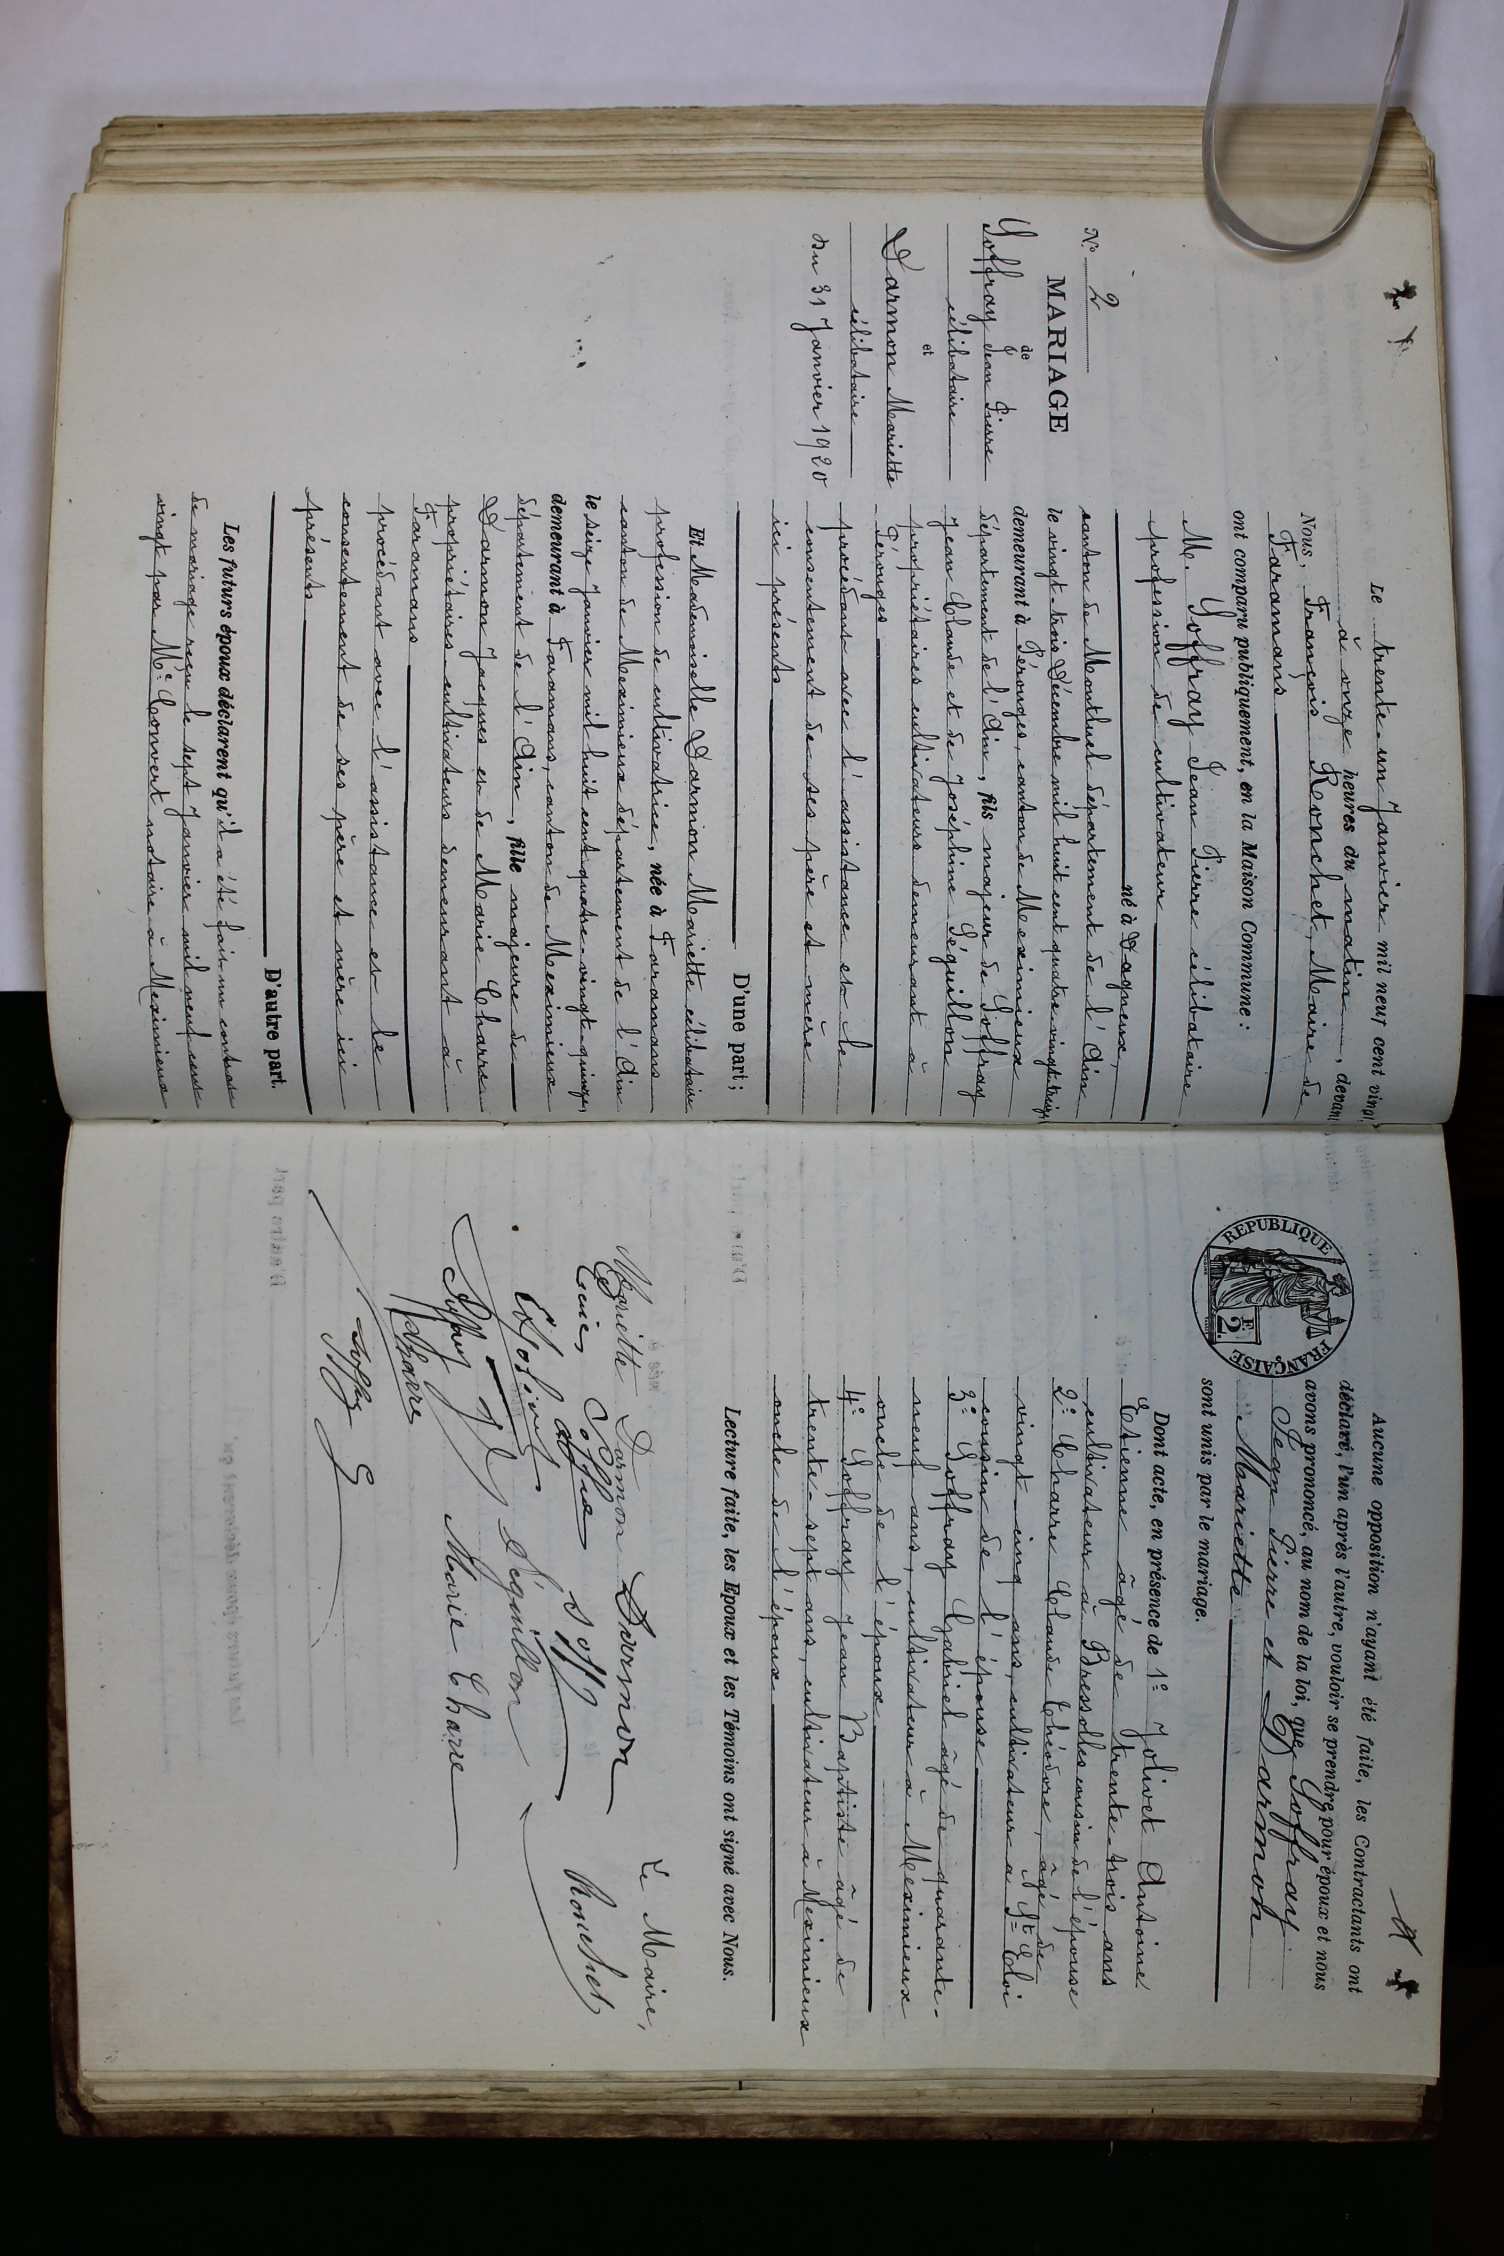 N° 2
MARIAGE
de
Soffray Jean Pierre
célibataire
et
Darmon Mariette
célibataire
du 31 Janvier 1920
Le trente-un Janvier mil neuf cent vingt
à onze heures du matin, devant
Nous, François Ronchet, Maire de
Faramans
ont comparu publiquement, en la Maison Commune :
M. Soffray Jean Pierre célibataire
profession de cultivateur
né à Dagneux,
canton de Montluel département de l'Ain
le vingt-trois Décembre mil huit cent quatre vingt-treize
demeurant à Pérouges, canton de Meximieux
département de l'Ain, fils majeur de Soffray
Jean Claude et de Joséphine Séguillon
propriétaires cultivateurs demeurant à
Pérouges
procédant avec l'assistance et le
consentement de ses père et mère
ici présents
D'une part ;
Et Mademoiselle Darmon Mariette célibataire
profession de cultivatrice, née à Faramans
canton de Meximieux département de l'Ain
le seize Janvier mil huit cent quatre-vingt-quinze,
demeurant à Faramans, canton de Meximieux
département de l'Ain, fille majeure de
Darmon Jacques et de Marie Charre
propriétaires cultivateurs demeurant à
Faramans
procédant avec l'assistance et le
consentement de ses père et mère ici
présents
D'autre part.
Les futurs époux déclarent qu'il a été fait un contrat
de mariage reçu le sept Janvier mil neuf cent
vingt par Me Convert notaire à Meximieux
REPUBLIQUE FRANÇAISE
2 F.
Aucune opposition n'ayant été faite, les Contractants ont
déclaré, l'un après l'autre, vouloir se prendre pour époux et nous
avons prononcé, au nom de la loi, que Soffray
Jean Pierre et Darmon
Mariette
sont unis par le mariage.
Dont acte, en présence de 1° Jolivet Antoine
Etienne âgé de trente-trois ans
cultivateur à Bressolles cousin de l'épouse
2° Charre Claude Théodore, âgé de
vingt-cinq ans, cultivateur à St Eloi
cousin de l'épouse
3° Soffray Gabriel âgé de quarante-
neuf ans, cultivateur à Meximieux
oncle de l'époux
4° Soffray Jean Baptiste âgé de
trente-sept ans, cultivateur à Meximieux
oncle de l'époux
Lecture faite, les Epoux et les Témoins ont signé avec Nous.
Le Maire,
Mariette Darmon Darmon
Ronchet
Séguillon
Marie Charre
Charre
Soffray G